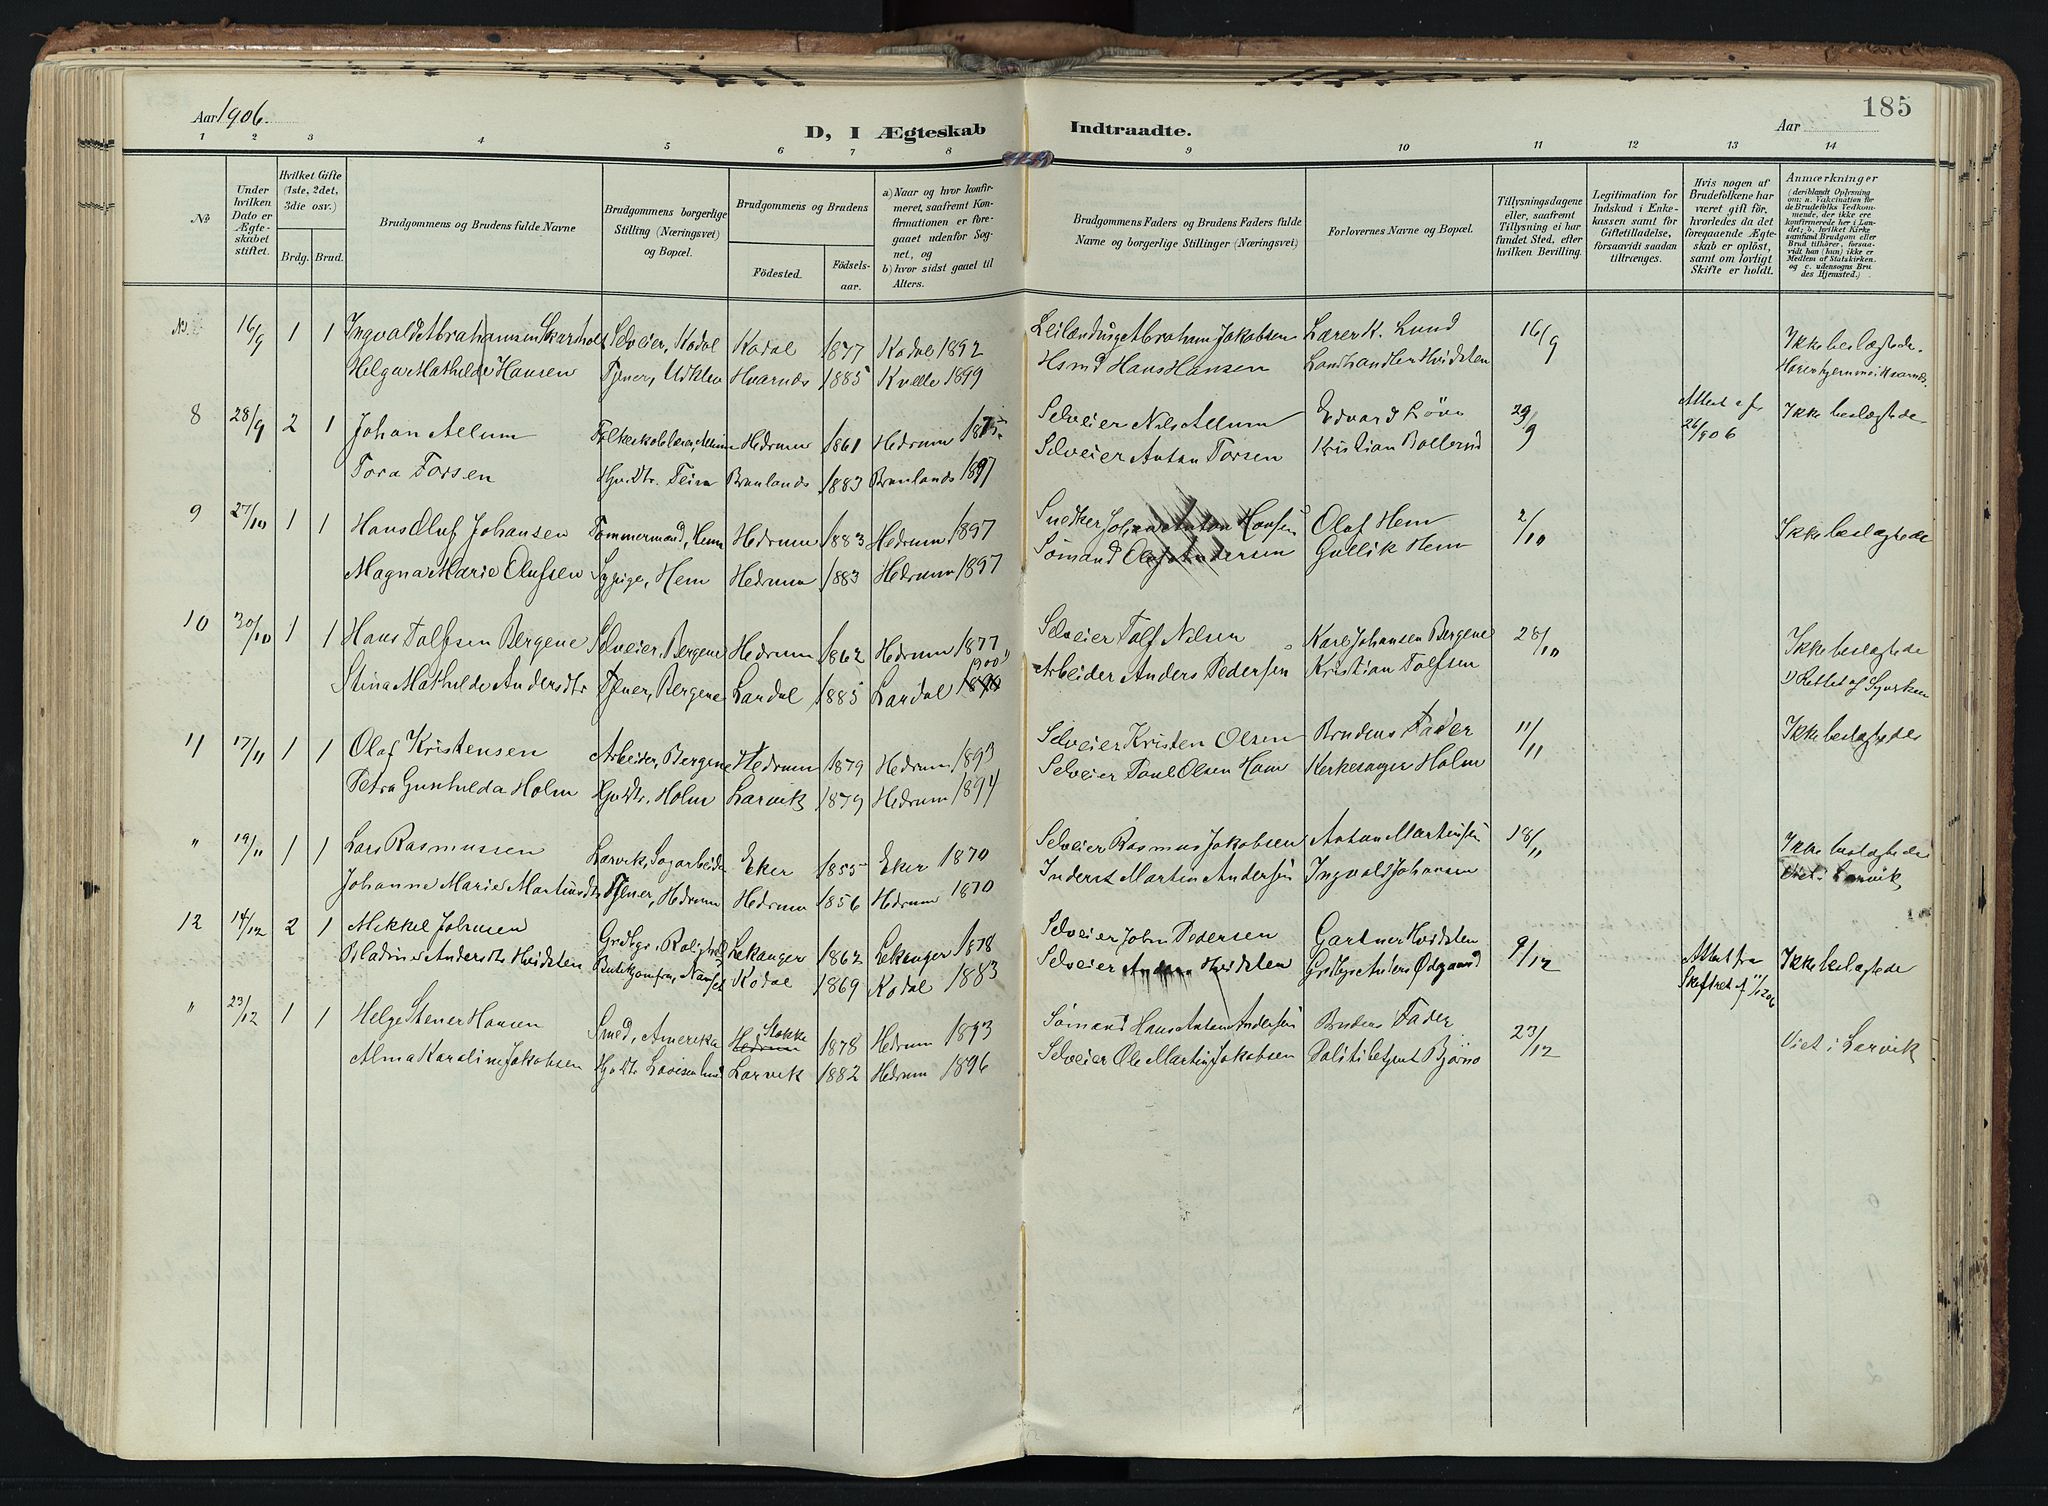 Aar 1906.
D, I Ægteskab Indtraadte.
Aar
185
1 2 3 4 5 6 7 8 9 10 11 12 13 14
No
Under hvilken Dato er Ægteskabet stiftet.
Hvilket Gifte (1ste, 2det, 3die osv.)
Brdg. Brud.
Brudgommens og Brudens fulde Navne
Brudgommens borgerlige Stilling (Næringsvei) og Bopæl.
Brudgommens og Brudens
Födested.
Födsels-aar.
a) Naar og hvor konfirmeret, saafremt Konfirmationen er foregaaet udenfor Sognet, og
b) hvor sidst gaaet til Alters.
Brudgommens Faders og Brudens Faders fulde Navne og borgerlige Stillinger (Næringsvei)
Forlovernes Navne og Bopæl.
Tillysningsdagene eller, saafremt Tillysning ei har fundet Sted, efter hvilken Bevilling.
Legitimation for Indskud i Enkekassen samt for Giftetilladelse, forsaavidt saadan tiltrænges.
Hvis nogen af Brudefolkene har været gift för, hvorledes da det foregaaende Ægteskab er oplöst, samt om lovligt Skifte er holdt.
Anmærkninger
(deriblandt Oplysning om: a. Vakcination for de Brudefolks Vedkommende, der ikke ere konfirmerede her i Landet; b. hvilket Kirkesamfund Brudgom eller Brud tilhörer, forsaavidt han (hun) ikke er Medlem af Statskirken og c. udensogns Brudes Hjemsted.)
16/9 1 1 Ingvald Abrahamsen Selveier, Kodal Kodal 1877 Kodal 1892 Leilænding Abraham Jakobsen Lærer K. Lund 16/9 Ikke beslægtede.
Helga Mathilde Hansen Tjener, Hvarnes 1885 Kvelle 1899 Hsmd Hans Hansen Landhandler Hvidsten
8 28/9 2 1 Johan Allum Hedrum 1861 Hedrum 1875 Selveier Nils Allum Edvard Løve 29/9 Attest af 26/9 06 Ikke beslægtede
Tora Torsen Brunlanes 1883 Brunlanes 1897 Selveier Anton Torsen Kristian Bollerud
9 27/10 1 1 Hans Oluf Johansen Tømmermand, Hem Hedrum 1883 Hedrum 1897 Snedker Johan Anton Hansen Olaf Hem 2/10 Ikke beslægtede
Magna Marie Olufsen Sypige, Hem Hedrum 1883 Hedrum 1897 Sømand Olaf Andersen Gullik Hem
10 30/10 1 1 Hans Tolfsen Bergene Selveier, Bergene Hedrum 1862 Hedrum 1877 Selveier Tolf Nilsen Karl Johansen Bergene 28/10 Ikke beslægtede
Stina Mathilde Andersdtr Tjener, Bergene Lardal 1885 Lardal 1900 1) Arbeider Anders Pedersen Kristian Tolfsen 1) Rettet af
11 17/11 1 1 Olaf Kristensen Arbeider, Bergene Hedrum 1879 Hedrum 1893 Selveier Kristen Olsen Brudens Fader 11/11 Ikke beslægtede
Petra Gunhilda Holm Hjv. Dtr., Holm Larvik 1879 Hedrum 1894 Selveier Paul Olsen Kirkesanger Holm
" 19/11 1 1 Lars Rasmussen Larvik, Sagarbeider Eker 1855 Eker 1870 Selveier Rasmus Jakobsen Anton Martinsen 18/11 Ikke beslægtede
Johanne Marie Martinsdtr Tjener, Hedrum Hedrum 1856 Hedrum 1870 Inderst Martin Andersen Ingvald Johansen Viet i Larvik
12 14/12 2 1 Mikkel Johnsen Lekanger 1862 Lekanger 1878 Selveier John Pedersen Gartner Hvidsten 9/12 Attest fra Skiftret af 11/12 06 Ikke beslægtede
Andersdtr Hvidsten Nanset Kodal 1869 Kodal 1883 Selveier Anders Hvidsten Anders Ødgaard
" 23/12 1 1 Helge Stener Hansen Smed, Amerika Stokke 1878 Hedrum 1893 Sømand Hans Anton Andersen Brudens Fader 23/12 Viet i Larvik
Alma Karoline Jakobsen Hjv. Dtr. Larvik 1882 Hedrum 1896 Selveier Ole Martin Jakobsen Politibetjent Bjørnø